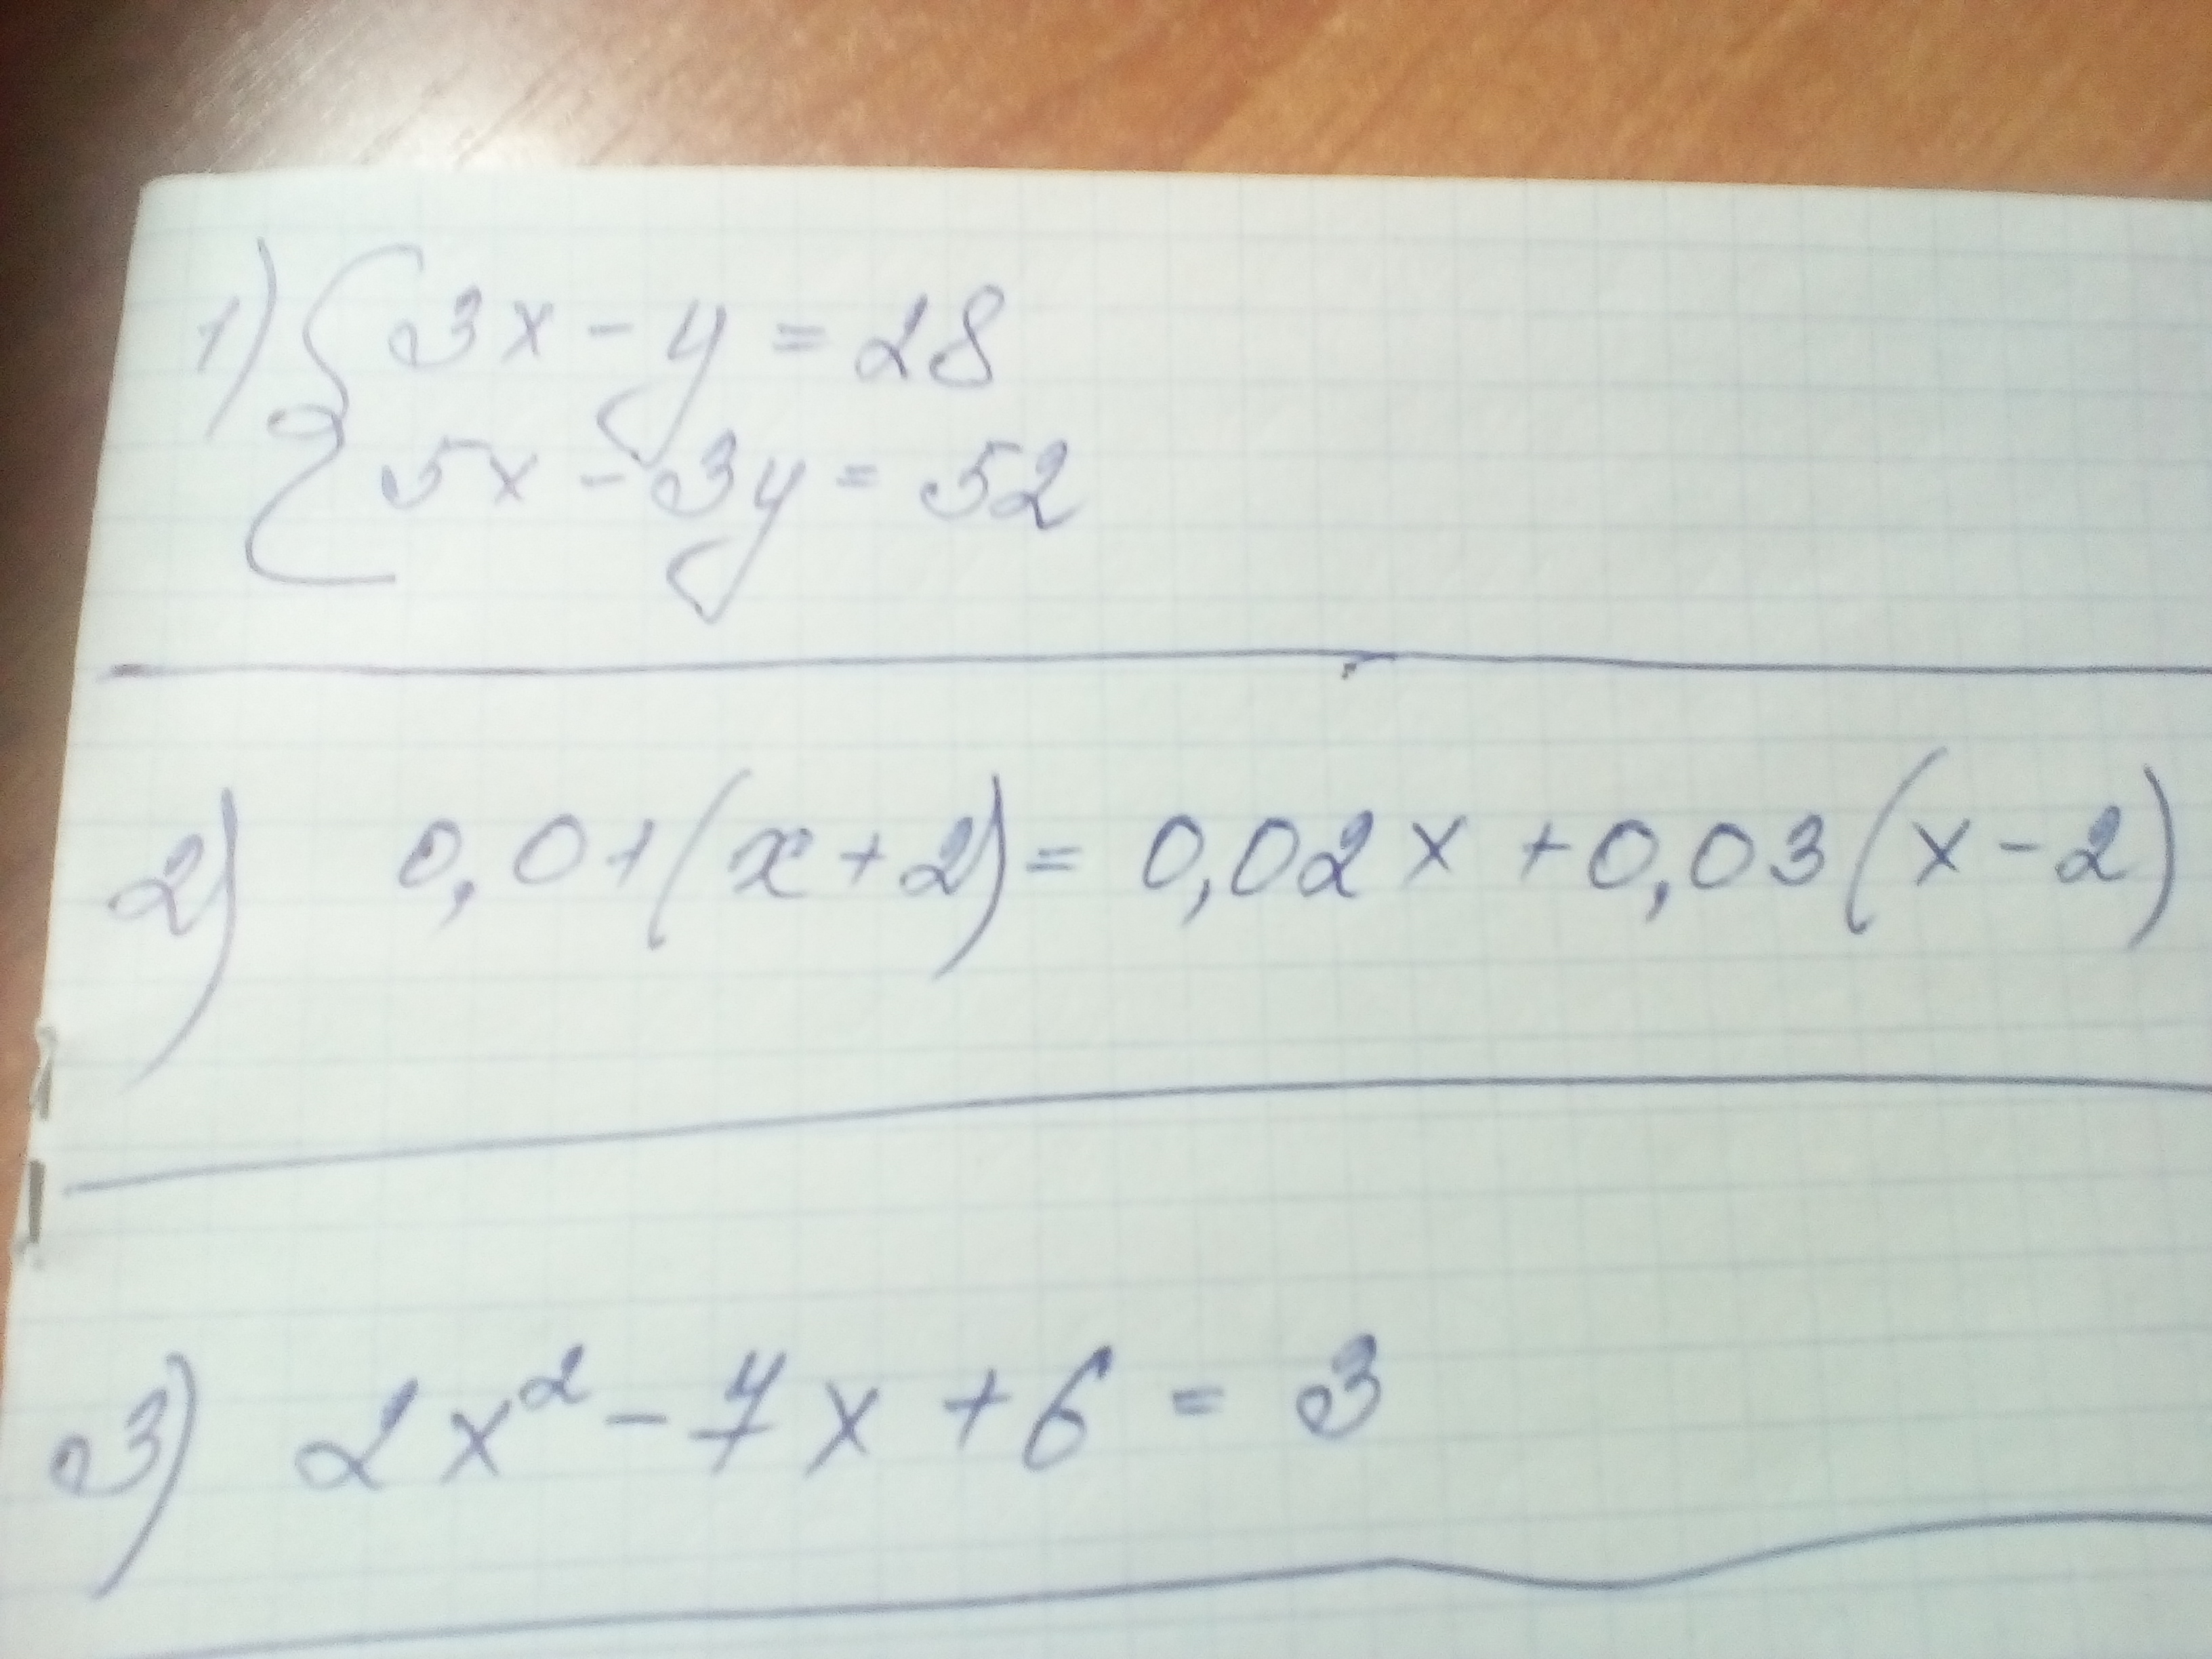 1) { 3x - y = 28
5x - 3y = 52
2) 0,01(x+2) = 0,02x + 0,03(x-2)
3) 2x² - 7x + 6 = 3